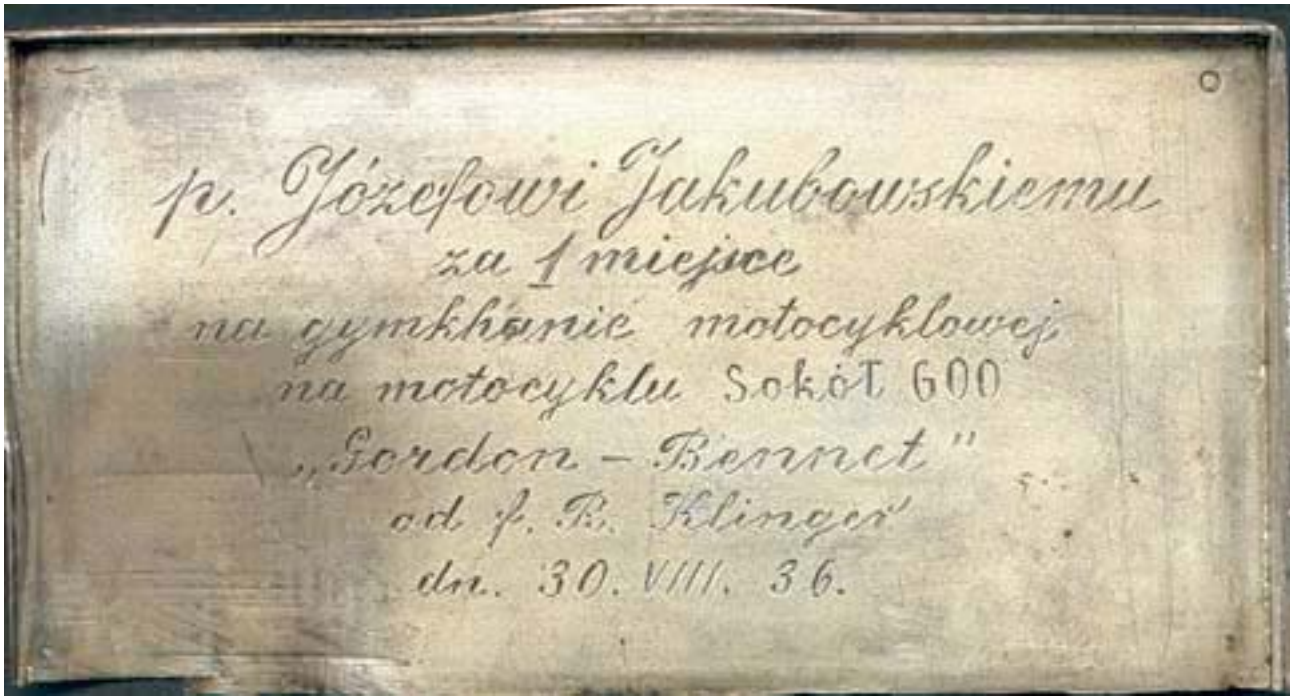 p. Józefowi Jakubowskiemu
za 1 miejsce
na gymkhanie motocyklowej
na motocyklu Sokół 600
„Gordon - Bennet"
od f. B. Klinger
dn. 30. VIII. 36.